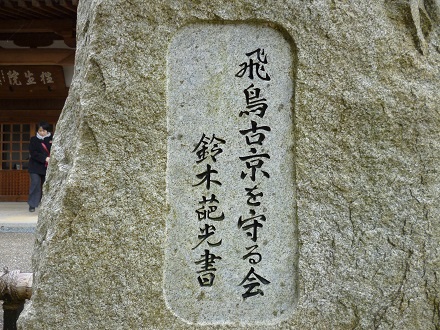 飛鳥古京を守る会
鈴木葩光書